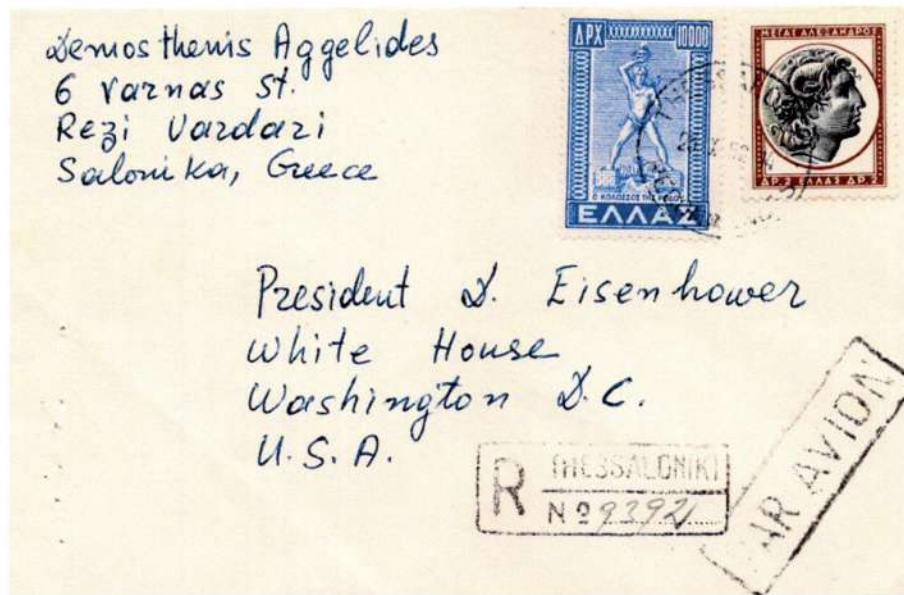 Demosthenis Aggelides
6 Varnas St.
Rezi Vardari
Salonika, Greece
ΔΡΧ 10000
Ο ΚΟΛΟΣΣΟΣ ΤΗΣ ΡΟΔΟΥ
ΕΛΛΑΣ
ΜΕΓΑΣ ΑΛΕΞΑΝΔΡΟΣ
ΔΡ.2 ΕΛΛΑΣ ΔΡ.2
President D. Eisenhower
White House
Washington D.C.
U.S.A.
R THESSALONIKI
Nº 9392
PAR AVION